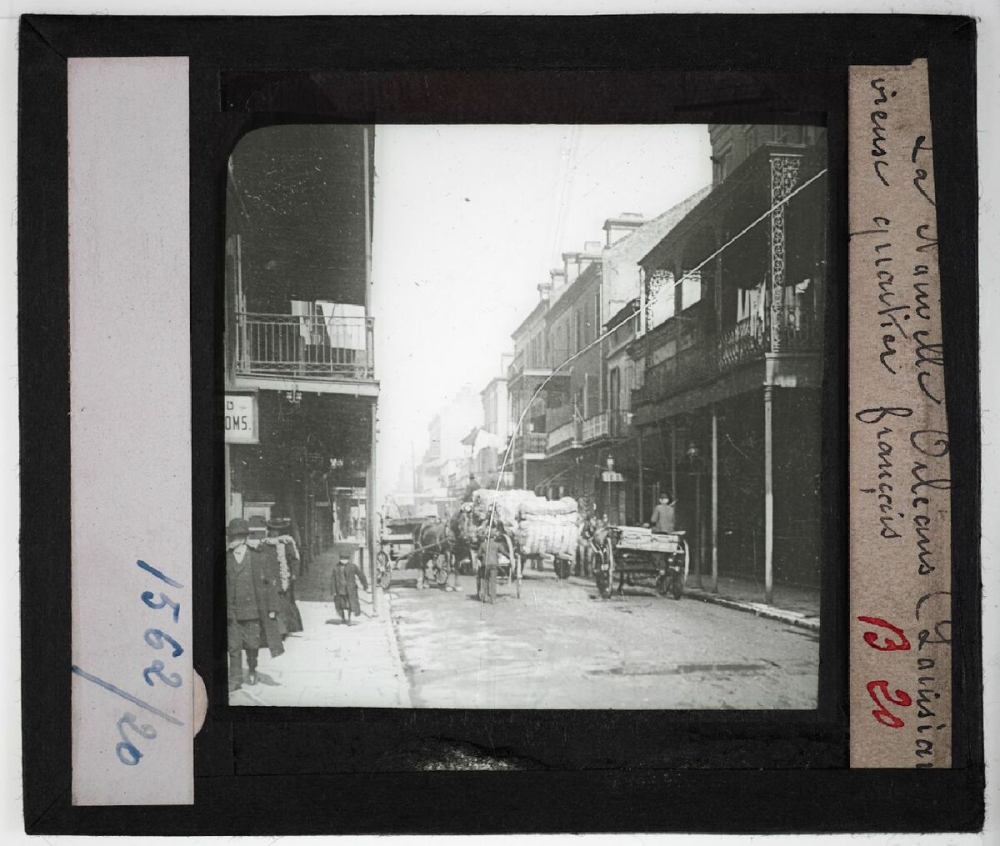 La Nouvelle Orléans (Louisian
vieux quartier français
B 20
1562/20
OMS.